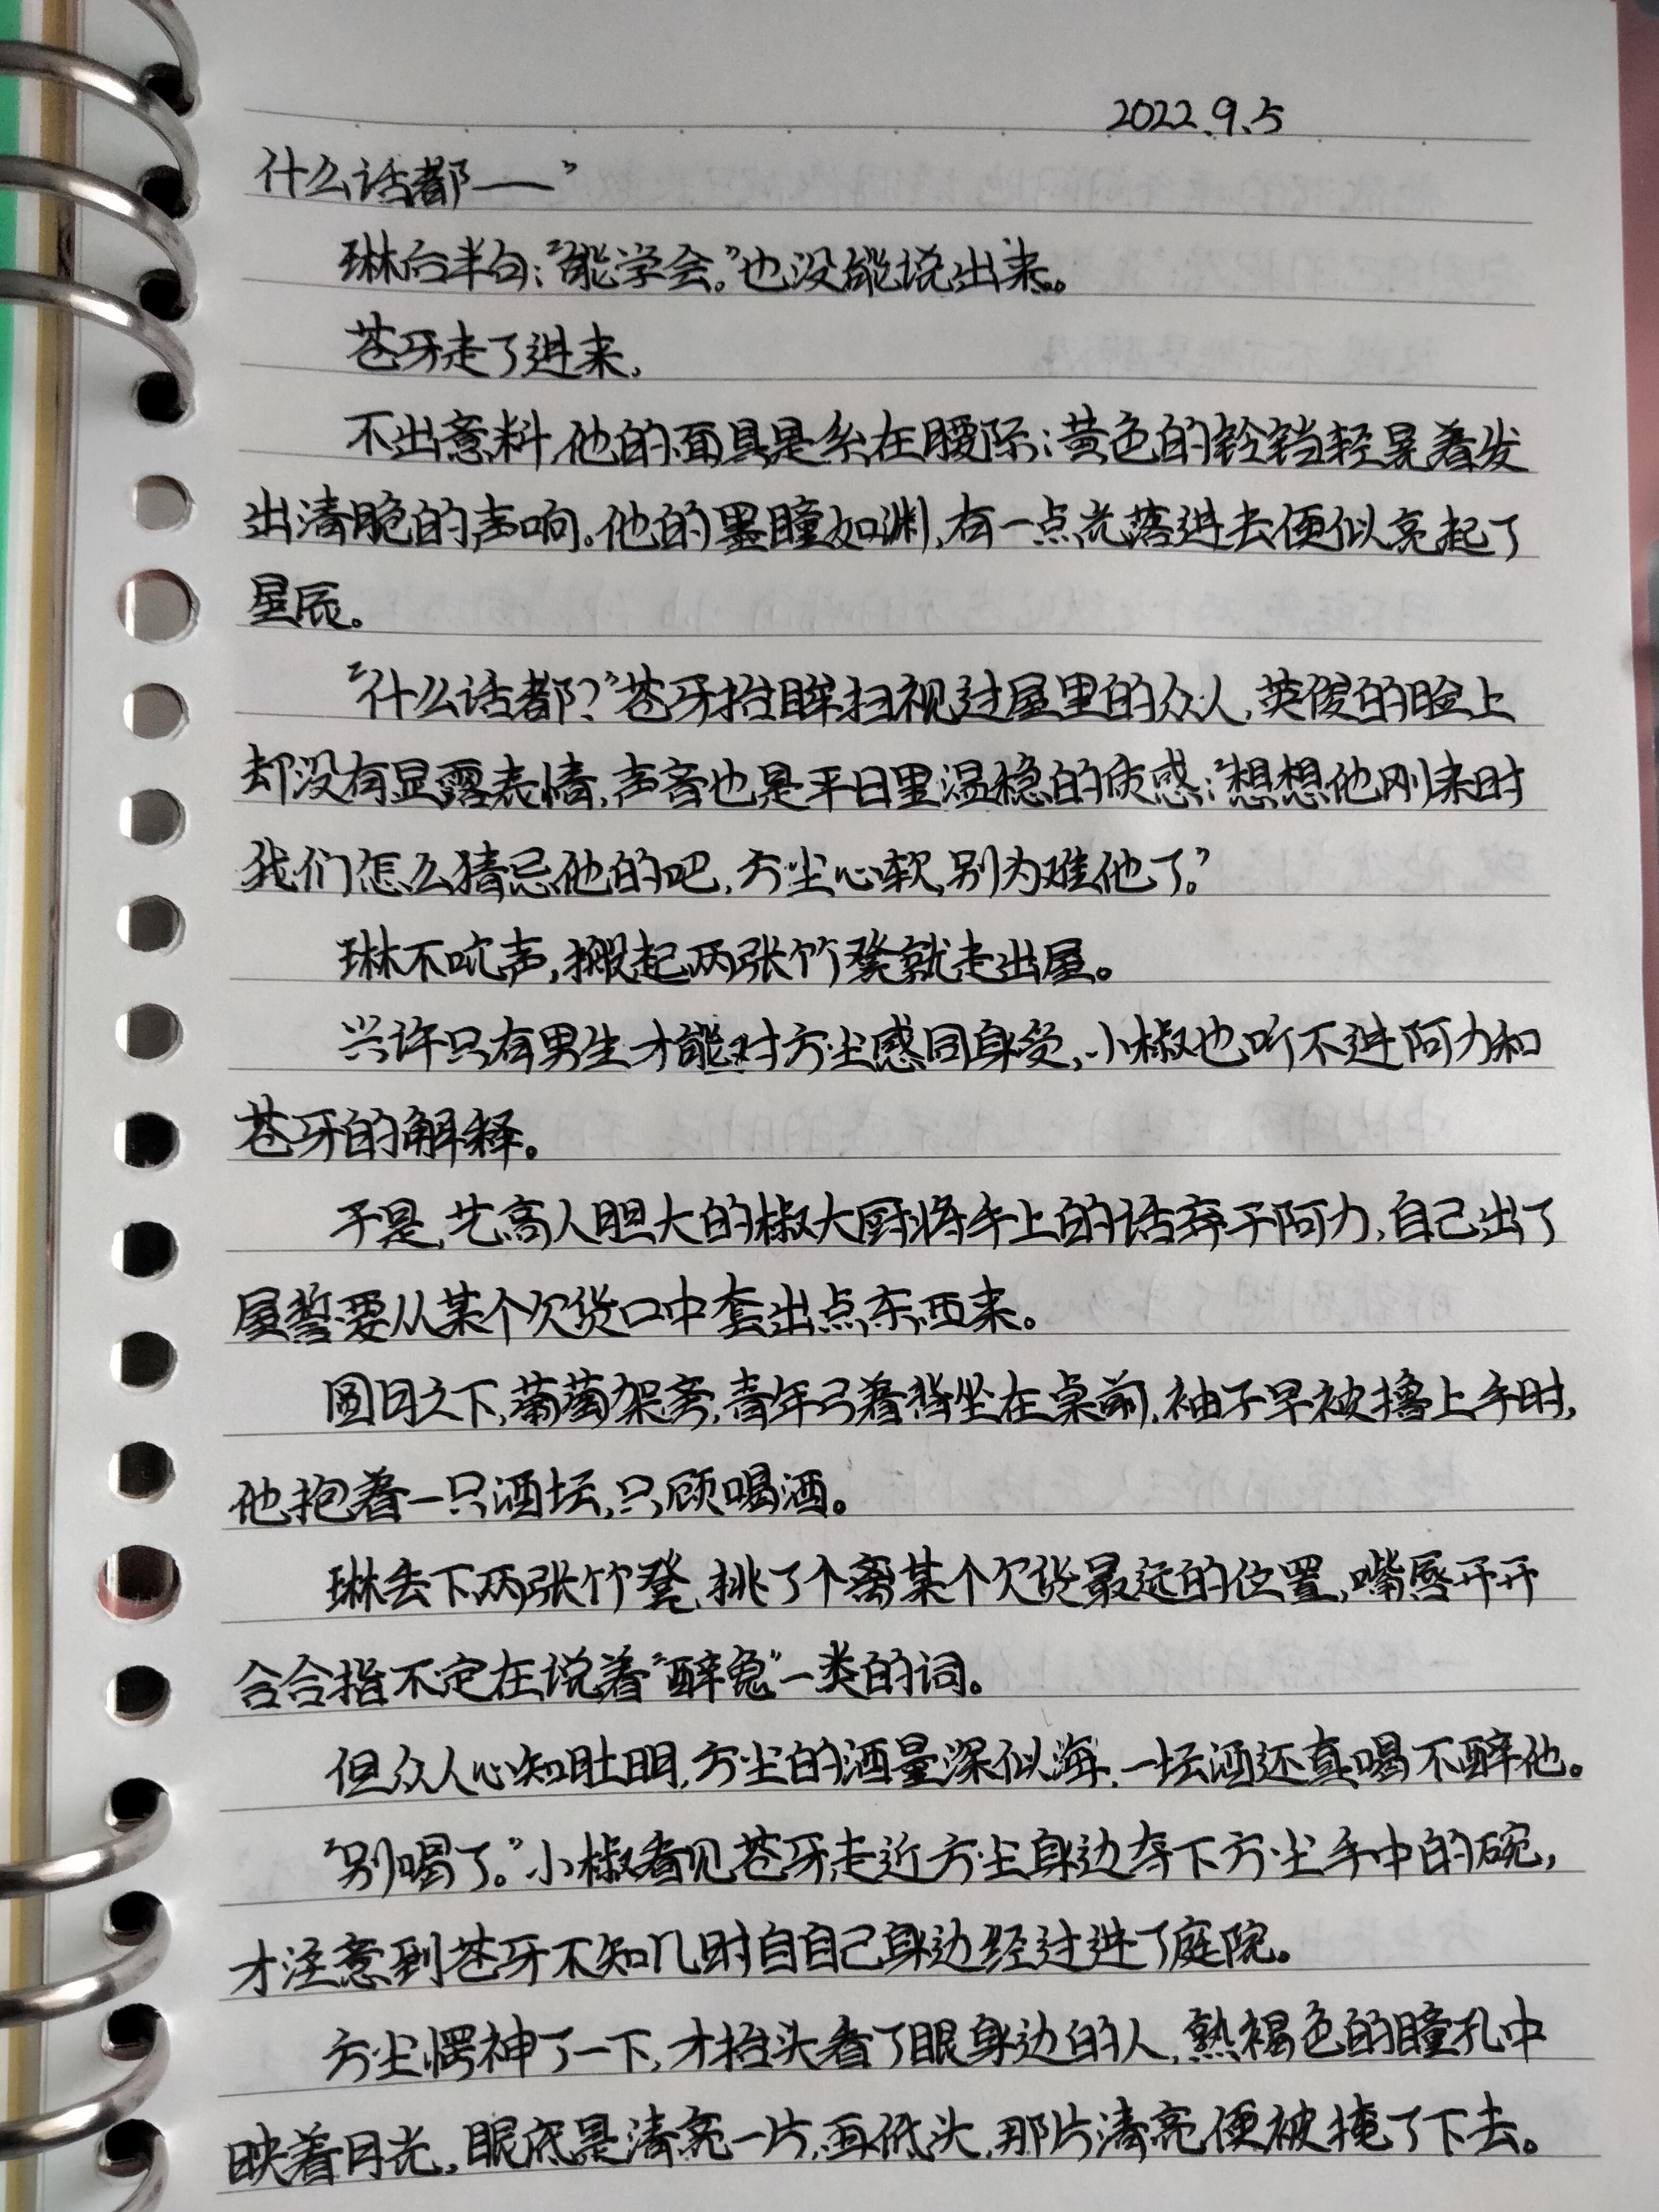 2022.9.5
什么话都——”
琳后半句：“能学会。”也没能说出来。
苍牙走了进来，
不出意料，他的面具是系在腰际；黄色的铃铛轻晃着发
出清脆的声响。他的墨瞳如渊，有一点光落进去便似亮起了
星辰。
“什么话都？”苍牙抬眸扫视过屋里的众人，英俊的脸上
却没有显露表情，声音也是平日里温稳的质感：“想想他刚来时
我们怎么猜忌他的吧，方尘心软，别为难他了。”
琳不吭声，搬起两张竹凳就走出屋。
兴许只有男生才能对方尘感同身受，小椒也听不进阿力和
苍牙的解释。
于是，艺高人胆大的椒大厨将手上的话弃于阿力，自己出了
屋誓要从某个欠货口中套出点东西来。
圆月之下，葡萄架旁，青年弓着背坐在桌前，袖子早被撸上手肘，
他抱着一只酒坛，只顾喝酒。
琳丢下两张竹凳，挑了个离某个欠货最远的位置，嘴唇开开
合合指不定在说着“醉鬼”一类的词。
但众人心知肚明，方尘的酒量深似海，一坛酒还真喝不醉他。
“别喝了。”小椒看见苍牙走近方尘身边夺下方尘手中的碗，
才注意到苍牙不知几时自自己身边经过进了庭院。
方尘愣神了一下，才抬头看了眼身边的人，熟褐色的瞳孔中
映着月光，眼底是清亮一片，再低头，那片清亮便被掩了下去。